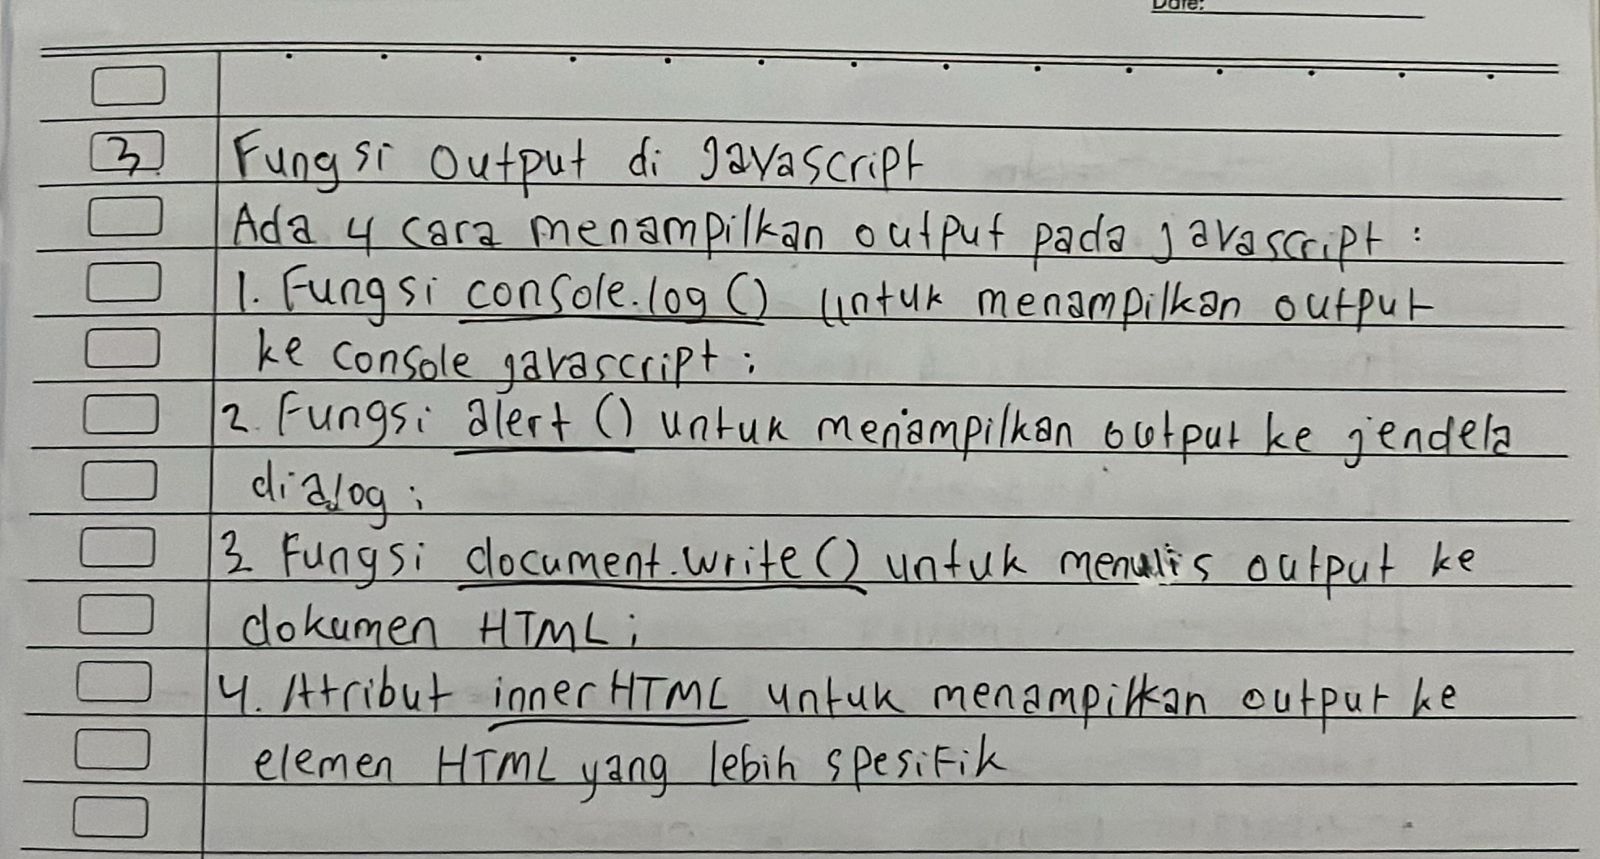 Date:
3 Fungsi Output di Javascript
Ada 4 cara menampilkan output pada javascript :
1. Fungsi console.log () untuk menampilkan output
ke console javascript ;
2. Fungsi alert () untuk menampilkan output ke jendela
dialog ;
3 Fungsi document.write () untuk menulis output ke
dokumen HTML ;
4. Atribut inner HTML untuk menampilkan output ke
elemen HTML yang lebih spesifik